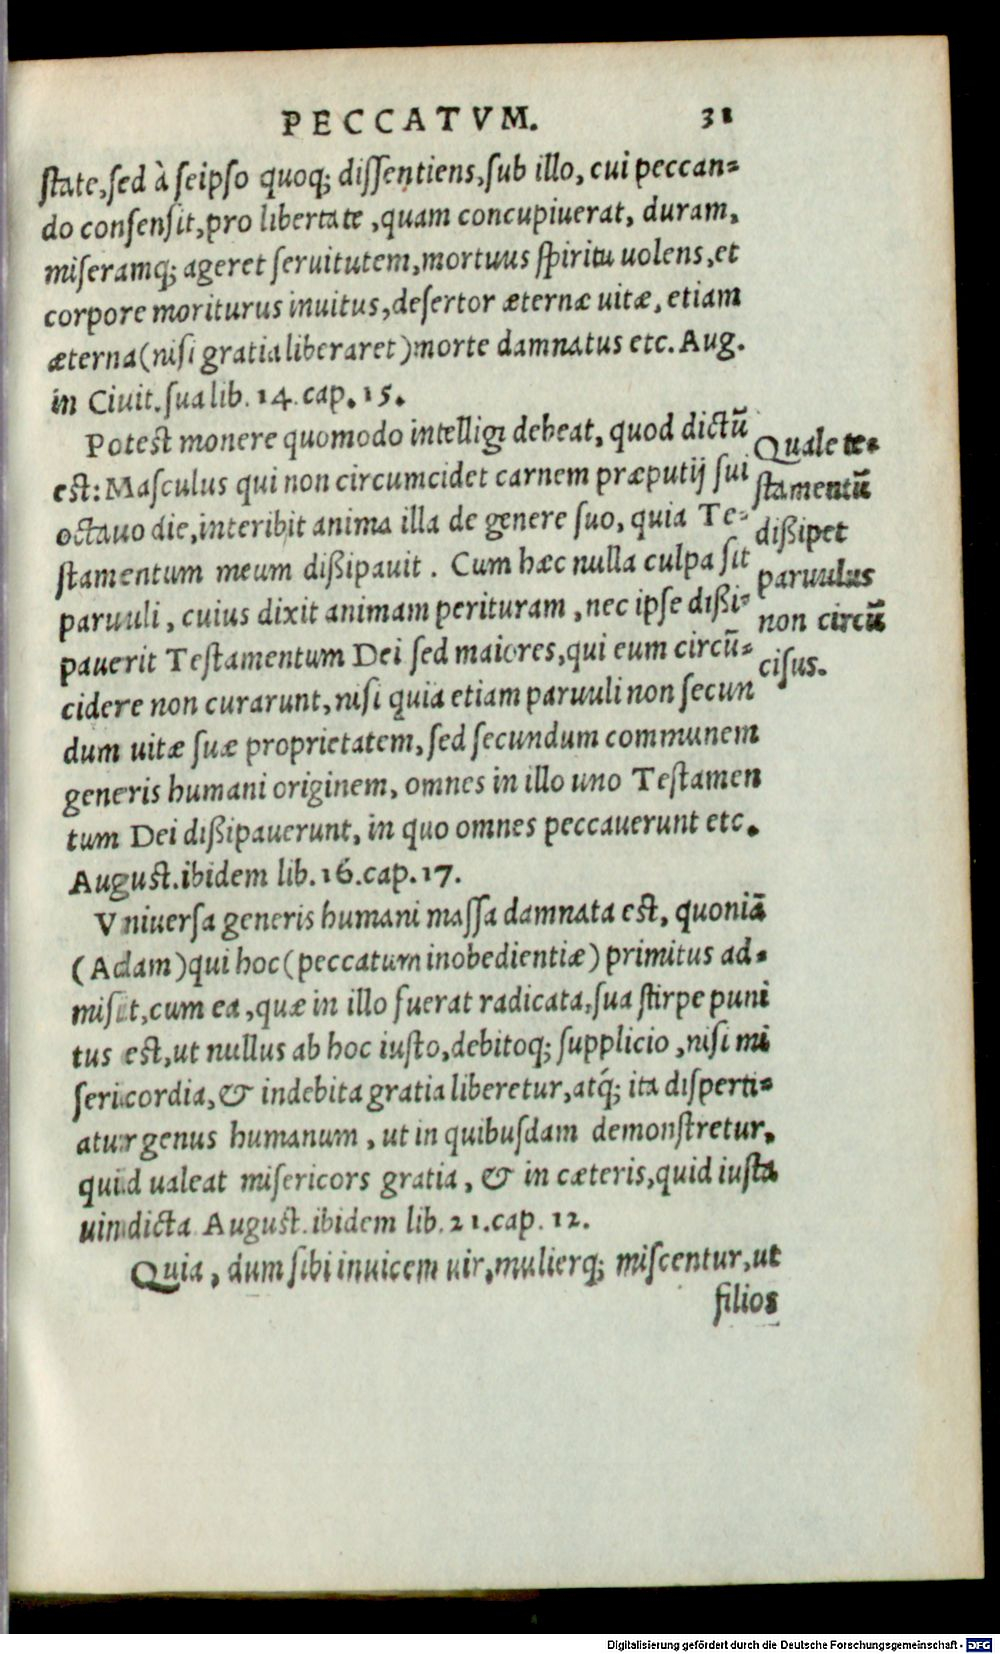 PECCATVM. 31
state, sed à seipso quoq; dissentiens, sub illo, cui peccan-
do consensit, pro libertate, quam concupiuerat, duram,
miseramq; ageret seruitutem, mortuus spiritu uolens, et
corpore moriturus inuitus, desertor æternæ uitæ, etiam
æterna (nisi gratia liberaret) morte damnatus etc. Aug.
in Ciuit. sua lib. 14. cap. 15.
Potest monere quomodo intelligi debeat, quod dictũ
est: Masculus qui non circumcidet carnem præputij sui
octauo die, interibit anima illa de genere suo, quia Te-
stamentum meum dißipauit. Cum hæc nulla culpa sit
paruuli, cuius dixit animam perituram, nec ipse dißi-
pauerit Testamentum Dei sed maiores, qui eum circũ-
cidere non curarunt, nisi quia etiam paruuli non secun
dum uitæ suæ proprietatem, sed secundum communem
generis humani originem, omnes in illo uno Testamen
tum Dei dißipauerunt, in quo omnes peccauerunt etc.
August. ibidem lib. 16. cap. 17.
Quale te-
stamentũ
dißipet
paruulus
non circũ
cisus.
Vniuersa generis humani massa damnata est, quoniã
(Adam) qui hoc (peccatum inobedientiæ) primitus ad-
misit, cum ea, quæ in illo fuerat radicata, sua stirpe puni
tus est, ut nullus ab hoc iusto, debitoq; supplicio, nisi mi
sericordia, & indebita gratia liberetur, atq́; ita disperti-
atur genus humanum, ut in quibusdam demonstretur,
quid ualeat misericors gratia, & in cæteris, quid iusta
uindicta August. ibidem lib. 21. cap. 12.
Quia, dum sibi inuicem uir, mulierq; miscentur, ut
filios
Digitalisierung gefördert durch die Deutsche Forschungsgemeinschaft - DFG